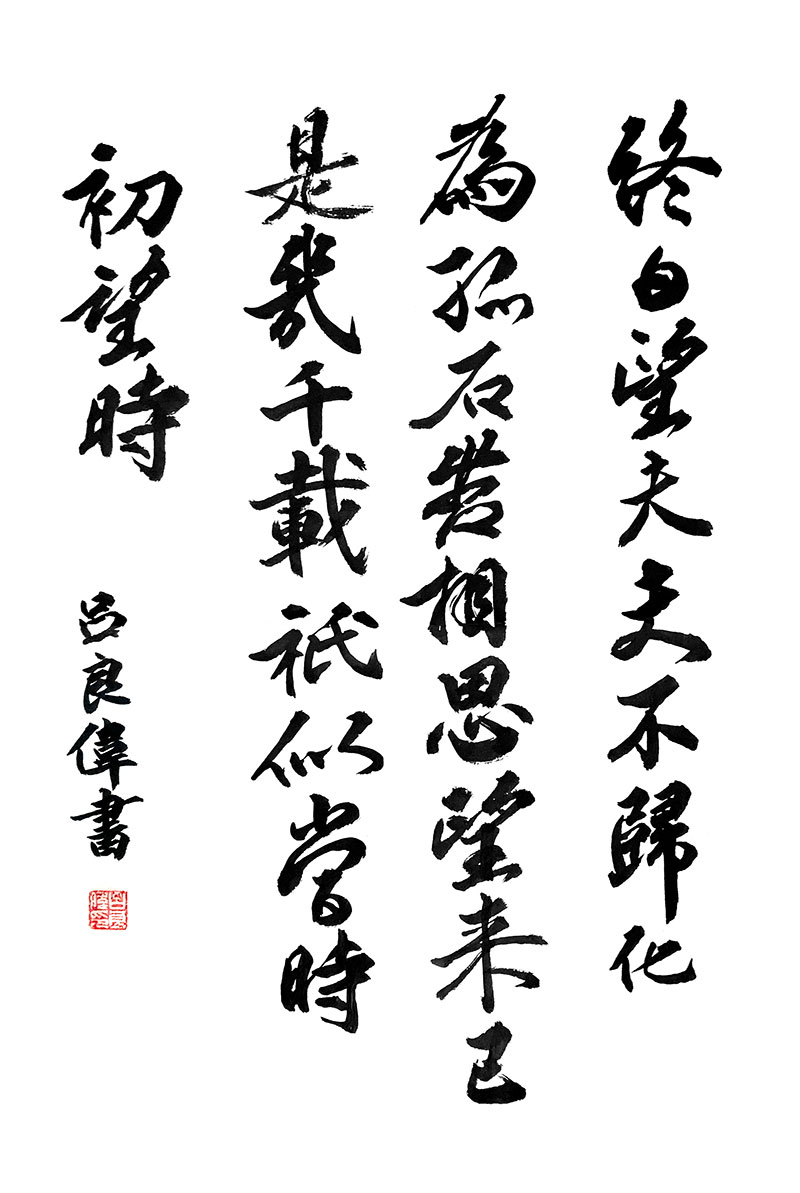 終日望夫夫不歸化
為孤石苦相思望来已
是幾千載祇似當時
初望時
呂良偉書